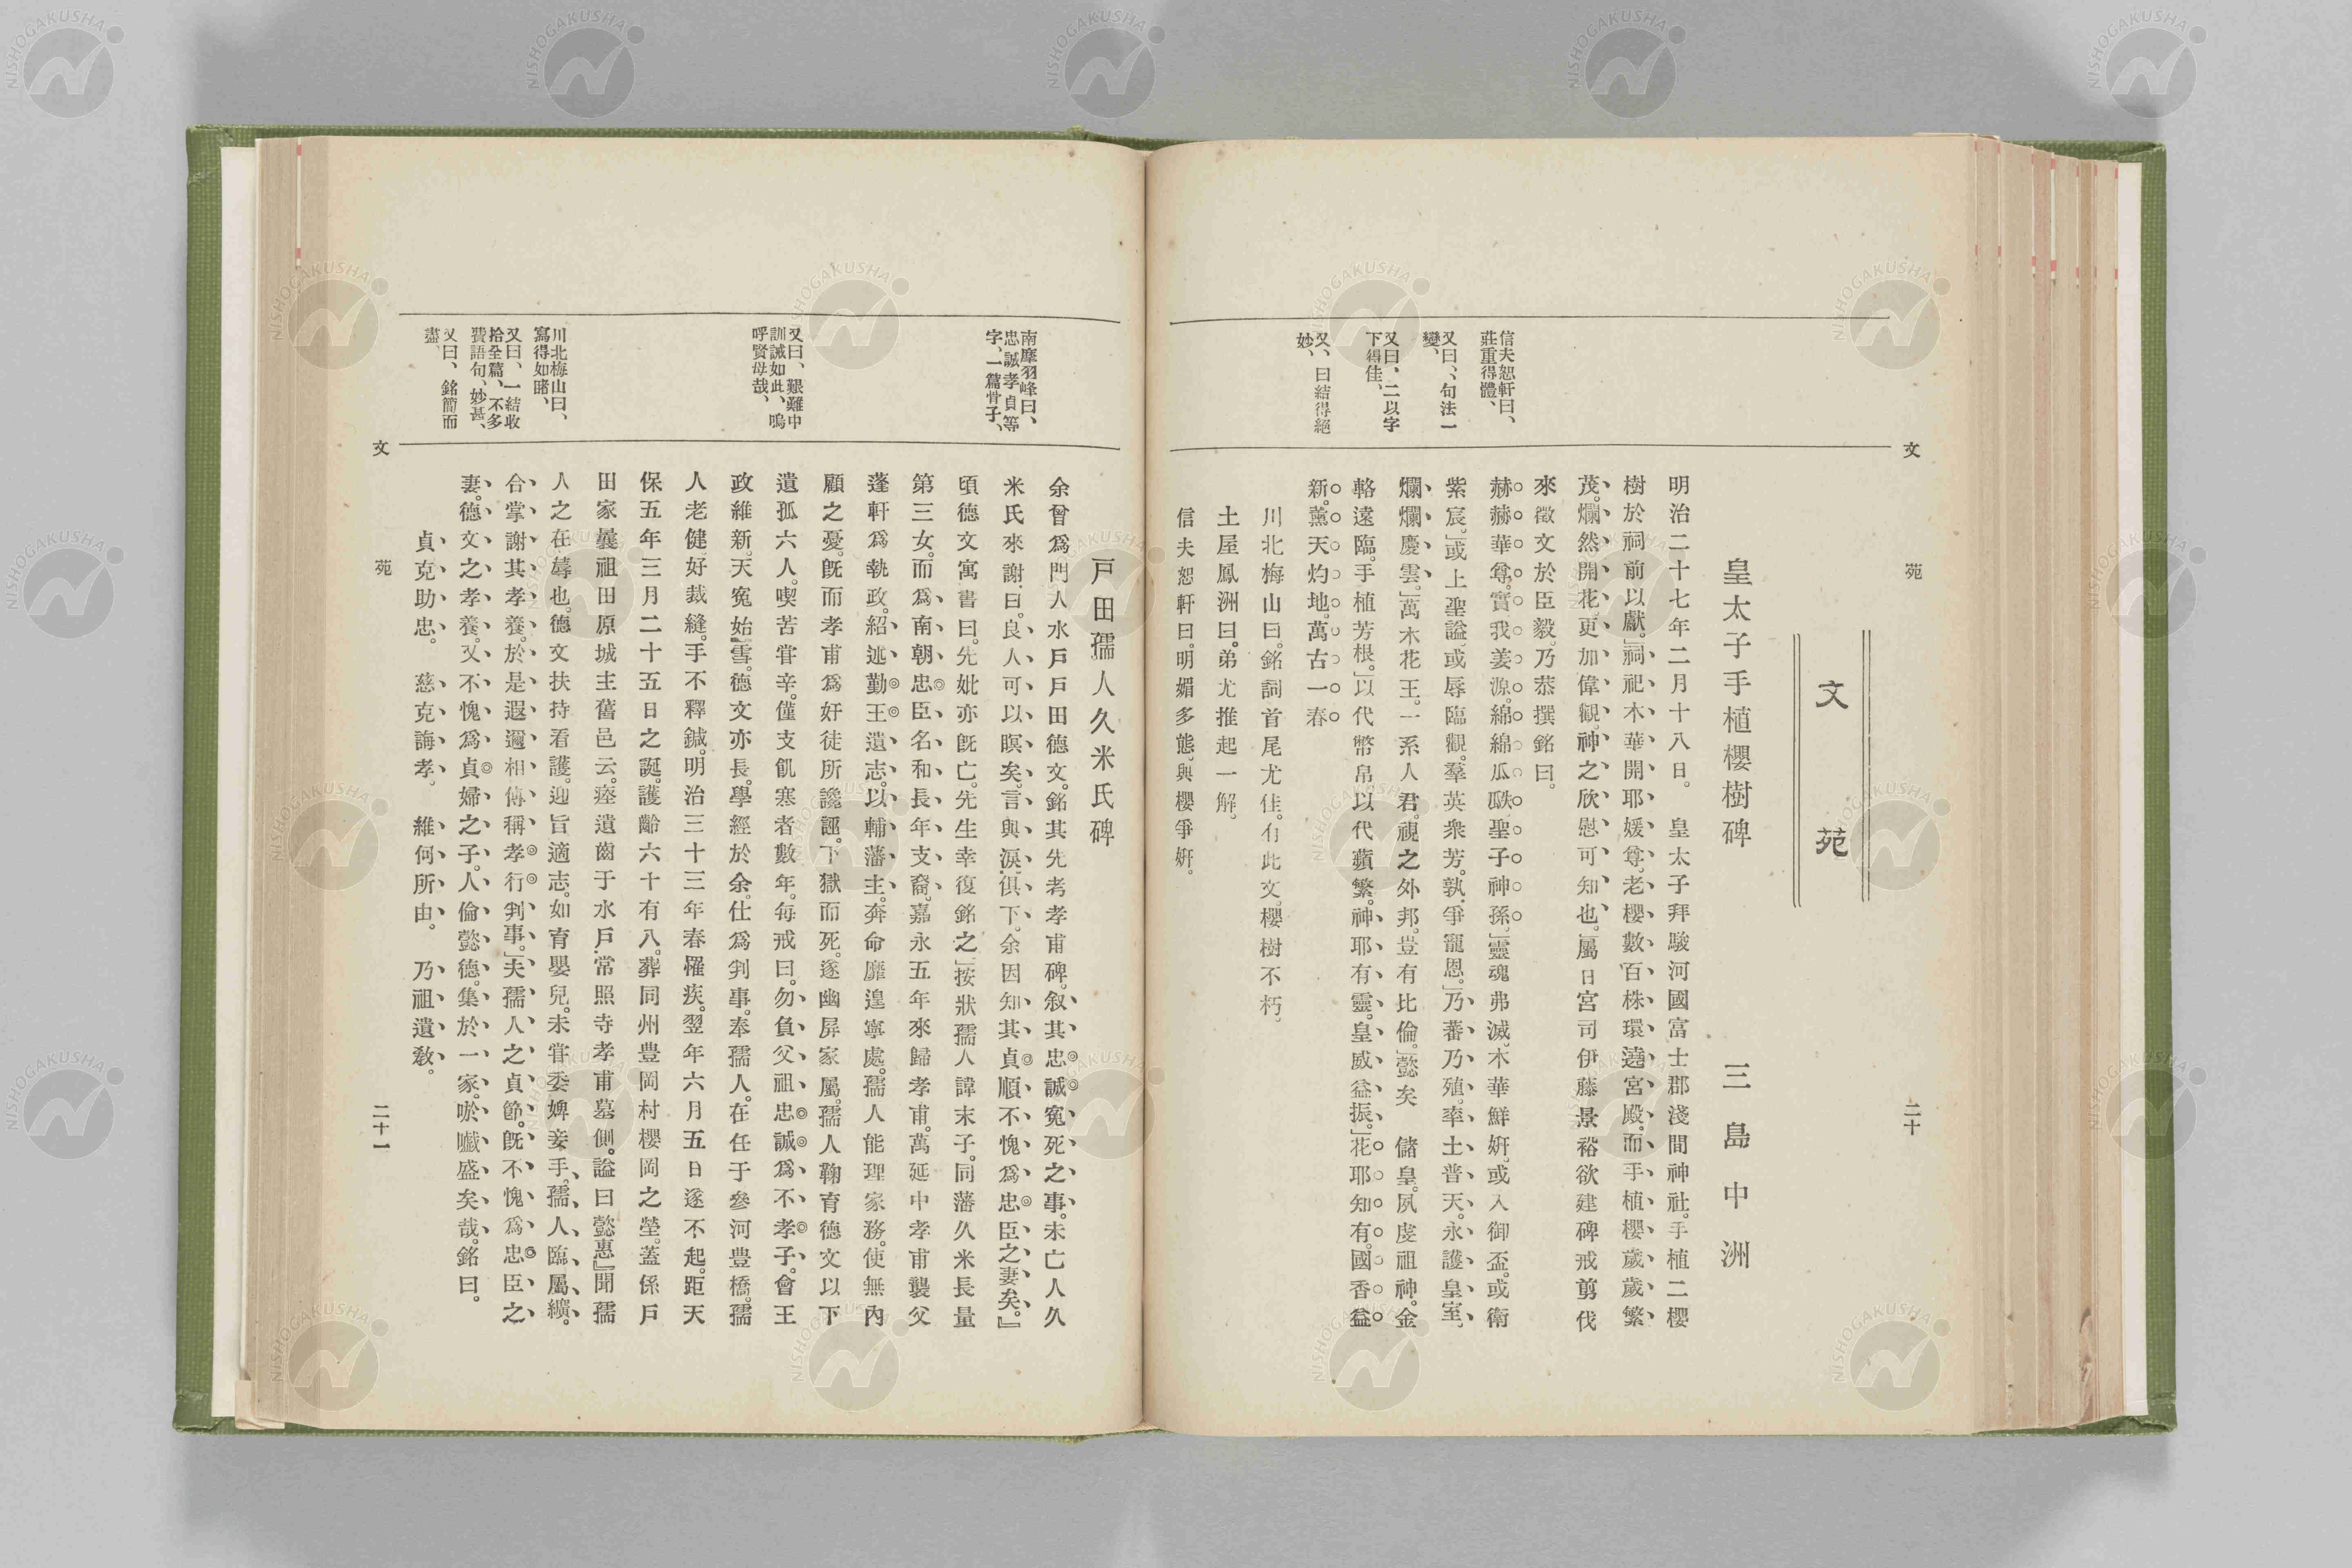 文苑
二十
文苑
皇太子手植櫻樹碑
三島中洲
明治二十七年二月十八日。皇太子拜駿河國富士郡淺間神社。手植二櫻
樹於祠前以獻。」祠祀木華開耶媛尊。老櫻數百株環遶宮殿。而手植櫻歲歲繁
茂。爛然開花。更加偉觀。神之欣慰可知也。」屬日宮司伊藤景裕欲建碑戒剪伐
來徵文於臣毅。乃恭撰銘曰。
赫赫華尊。實我姜源。綿綿瓜瓞。聖子神孫。」靈魂弗滅。木華鮮妍。或入御盃。或衛
紫宸。」或上聖謚。或辱臨觀。羣英衆芳。孰爭寵恩。」乃蕃乃殖。率土普天。永護皇室。
爛爛慶雲。」萬木花王。一系人君。視之外邦。豈有比倫。」懿矣儲皇。夙虔祖神。金
輅遠臨。手植芳根。」以代幣帛以代蘋繁。神耶有靈。皇威益振。」花耶知有。國香益
新。薰天灼地。萬古一春
川北梅山曰。銘詞首尾尤佳。有此文。櫻樹不朽。
土屋鳳洲曰。弟尤推起一解。
信夫恕軒曰。明媚多態。與櫻爭妍。
信夫恕軒曰、
莊重得體、
又曰、句法一
變、
又曰、二以字
下得佳、
又、曰結得絕
妙、
戸田孺人久米氏碑
余曾爲門人水戸戸田德文。銘其先考孝甫碑。叙其忠誠寃死之事。未亡人久
米氏來謝曰。良人可以瞑矣。言與淚俱下。余因知其貞順不愧爲忠臣之妻矣。』
頃德文寓書曰。先妣亦旣亡。先生幸復銘之」按狀孺人諱末子。同藩久米長量
第三女。而爲南朝忠臣名和長年支裔。嘉永五年來歸孝甫。萬延中孝甫襲父
蓬軒爲執政。紹述勤王遺志。以輔藩主。奔命靡遑寧處。孺人能理家務。使無內
顧之憂。旣而孝甫爲奸徒所讒誣。下獄而死。遂幽屏家屬。孺人鞠育德文以下
遺孤六人。喫苦甞辛。僅支飢寒者數年。每戒曰。勿負父祖忠誠爲不孝子。會王
政維新。天寃始雪。德文亦長。學經於余。仕爲判事。奉孺人。在任于參河豐橋。孺
人老健。好裁縫。手不釋鍼。明治三十三年春罹疾。翌年六月五日遂不起。距天
保五年三月二十五日之誕。護齡六十有八。葬同州豊岡村櫻岡之塋。蓋係戸
田家曩祖田原城主舊邑云。瘞遺齒于水戸常照寺孝甫墓側。謚曰懿惠』聞孺
人之在蓐也。德文扶持看護。迎旨適志。如育嬰兒。未甞委婢妾手。孺人臨屬纊。
合掌謝其孝養。於是遐邇相傳稱孝行判事。」夫孺人之貞節。旣不愧爲忠臣之
妻。德文之孝養。又不愧爲貞婦之子。人倫懿德。集於一家。於戲盛矣哉。銘曰。
貞克助忠。慈克誨孝。維何所由。乃祖遺敎。
南摩羽峰曰、
忠誠孝貞等
字、一篇骨子、
又曰、艱難中
訓誡如此、嗚
呼賢母哉、
川北梅山曰、
寫得如睹、
又曰、一結收
拾全篇、不多
費語句、妙甚、
又曰、銘簡而
盡、
文苑
二十一